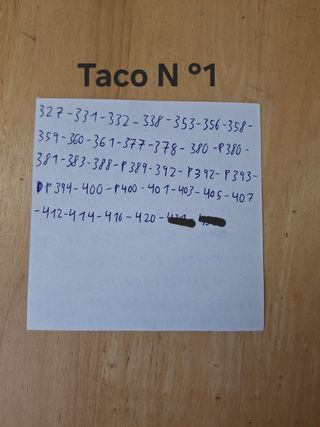 Taco N º1
327-331-332-338-353-356-358-
359-360-361-377-378-380-P380-
381-383-388-P389-392-P392-P393-
P394-400-P400-401-403-405-407
-412-414-416-420-